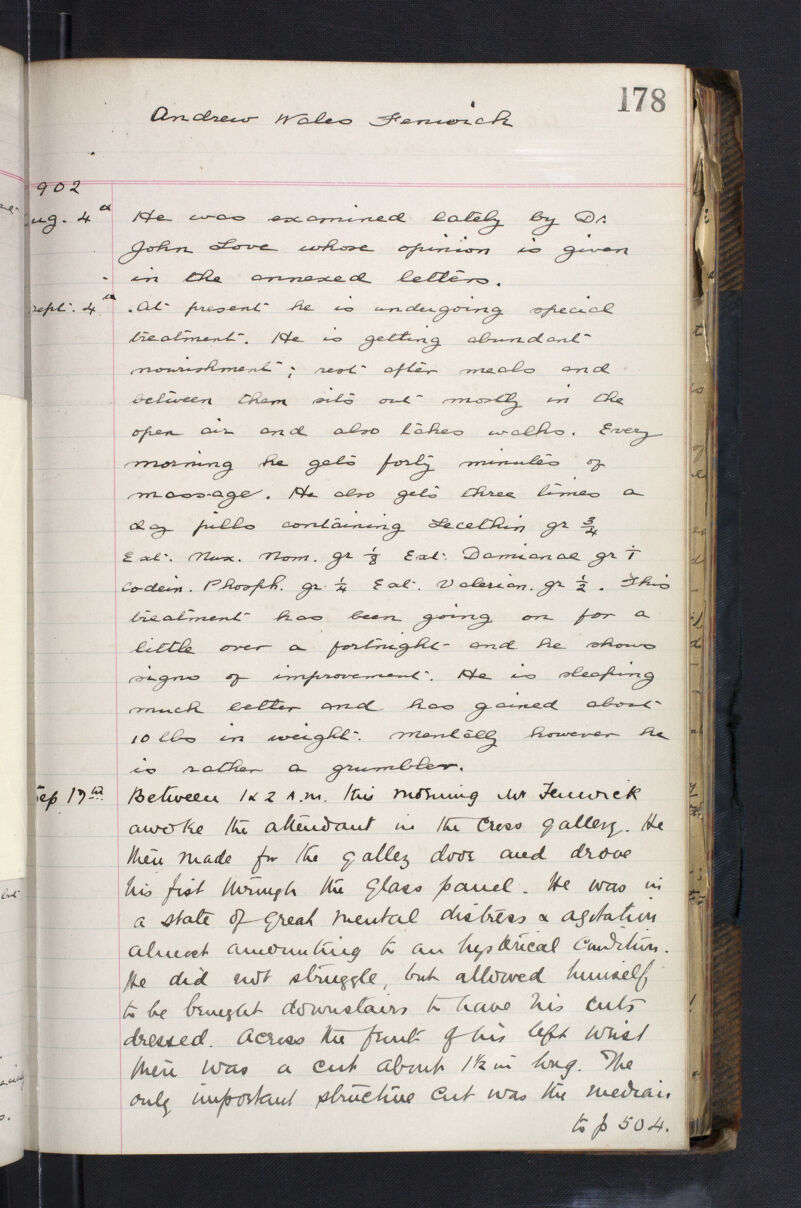 178
Andrew Wales Fenwick
902
ug. 4th He was examined lately by Dr.
John Love whose opinion is given
in the annexed letters.
Sept. 4th At present he is undergoing special
treatment. He is getting abundant
nourishment; rest after meals and
between them sits out mostly in the
open air and also takes walks. Every
morning he gets forty minutes of
massage. He also gets three times a
day pills containing Lecethin gr 3/4
Ext. Nux. Nom. gr 1/8 Ext. Damianae gr 1/1
Codein. Phosph. gr. 1/4 Ext. Valerian. gr 1/2. This
treatment has been going on for a
little over a fortnight and he shows
signs of improvement. He is sleeping
much better and has gained about
10 lbs in weight. Mentally however he
is rather a grumbler.
Sep 17th Between 1 & 2 A.M. this morning Mr Fenwick
awoke the attendant in the cross gallery. He
then made for the gallery door and drove
his fist through the glass panel. He was in
a state of great mental distress & agitation
almost amounting to an hysterical condition.
He did not struggle, but allowed himself
to be brought downstairs to have his cuts
dressed. Across the front of his left wrist
there was a cut about 1½ in long. The
only important structure cut was the median
to p 504.